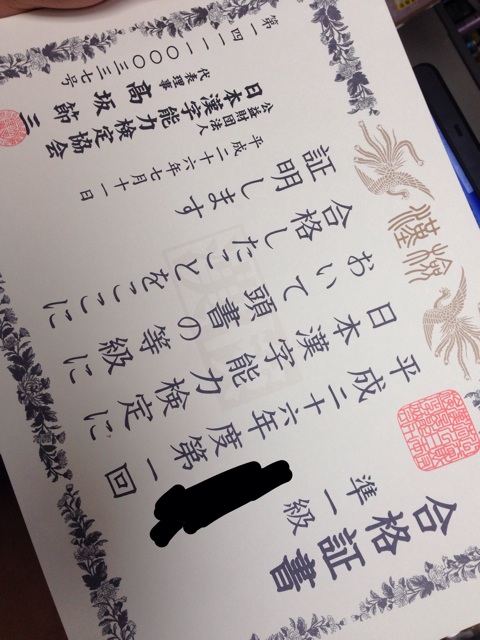 漢検
合格証書
準一級
平成二十六年度第一回
日本漢字能力検定に
おいて頭書の等級に
合格したことをここに
証明します
平成二十六年七月十一日
公益財団法人
日本漢字能力検定協会
代表理事 高坂節三
第一四一一〇〇〇三三七号